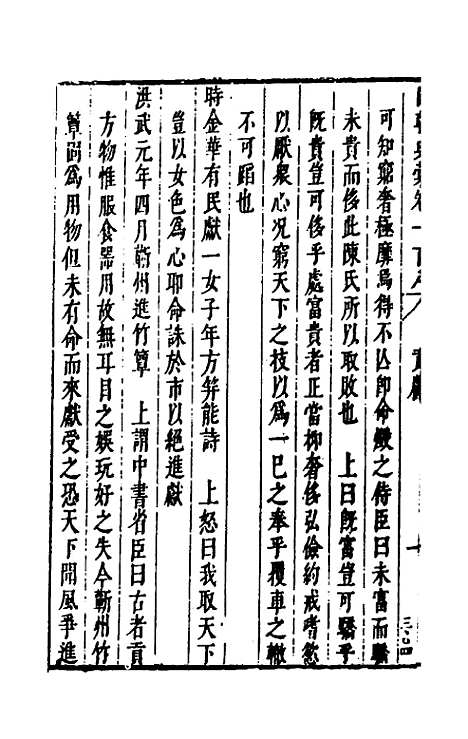 可知窮奢極靡烏得不亾即命毀之侍臣曰未富而驕
未貴而侈此陳氏所以取敗也　上曰既富豈可驕乎
既貴豈可侈乎處富貴者正當抑奢侈弘儉約戒嗜慾
以厭衆心况窮天下之技以爲一巳之奉乎覆車之轍
不可蹈也
時金華有民獻一女子年方笄能詩　上怒曰我取天下
豈以女色爲心耶命誅於市以絕進獻
洪武元年四月蘄州進竹簟　上謂中書省臣曰古者貢
方物惟服食器用故無耳目之娛玩好之失今蘄州竹
簟固爲用物但未有命而來獻受之恐天下聞風爭進